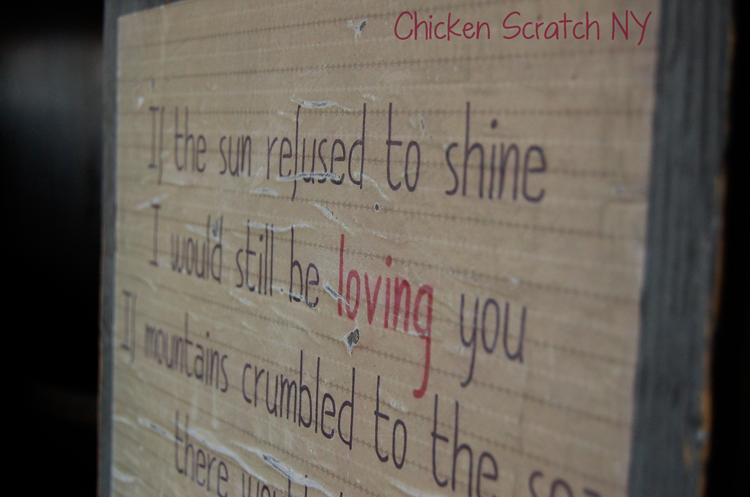 Chicken Scratch NY
If the sun refused to shine
I would still be loving you
If mountains crumbled to the sea
there would